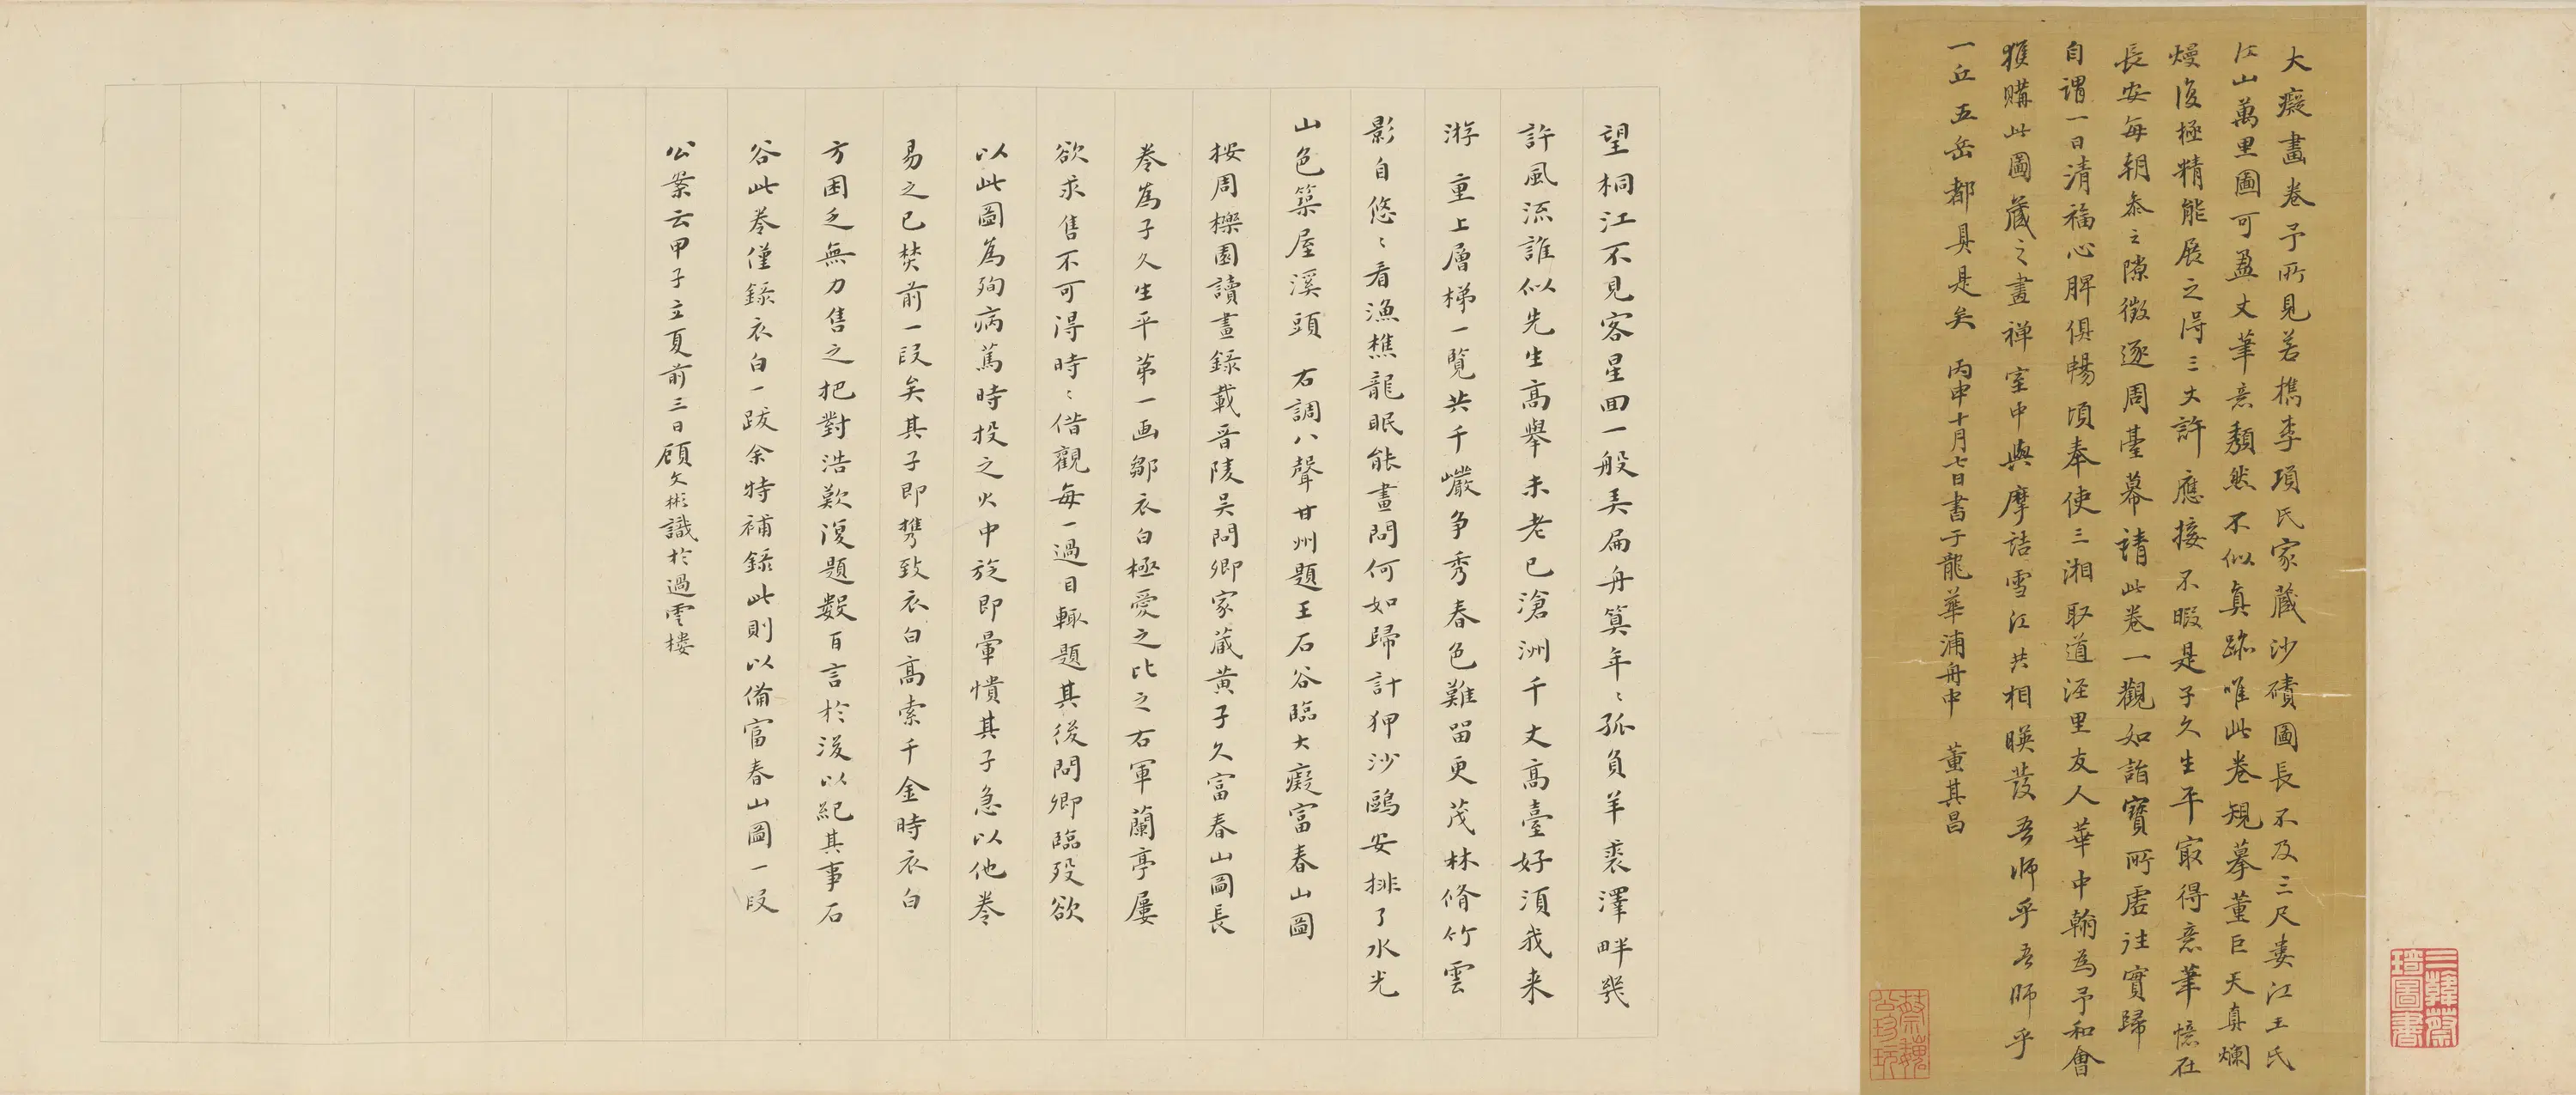 三韓蔡
琦圖書
大癡畫卷予所見若檇李項氏家藏沙磧圖長不及三尺婁江王氏
江山萬里圖可盈丈筆意頹然不似真跡唯此卷規摹董巨天真爛
熳復極精能展之得三丈許應接不暇是子久生平冣得意筆憶在
長安每朝叅之隙徵逐周臺幕請此卷一觀如詣寶所虛往實歸
自謂一日清福心脾俱暢頃奉使三湘取道涇里友人華中翰為予和會
獲購此圖藏之畫禅室中與摩詰雪江共相暎發吾師乎吾師乎
一丘五岳都具是矣 丙申十月七日書于龍華浦舟中 董其昌
蔡魏
公珍玩
望桐江不見客星回一般弄扁舟算年〻孤負羊裘澤畔幾
許風流誰似先生高舉未老已滄洲千丈高臺好須我来
游 重上層梯一覽共千巖争秀春色難留更茂林脩竹雲
影自悠〻看漁樵龍眠能畫問何如歸計狎沙鷗安排了水光
山色築屋溪頭 右調八聲甘州題王石谷臨大癡富春山圖
按周櫟園讀畫錄載晉陵吴問卿家蔵黄子久富春山圖長
卷為子久生平第一画鄒衣白極愛之比之右軍蘭亭屢
欲求售不可得時〻借觀每一過目輒題其後問卿臨歿欲
以此圖為殉病篤時投之火中旋即暈憒其子急以他卷
易之已焚前一段矣其子即攜致衣白高索千金時衣白
方困乏無力售之把對浩歎復題數百言於後以紀其事石
谷此卷僅錄衣白一跋余特補錄此則以備富春山圖一段
公案云甲子立夏前三日顧文彬識於過雲樓